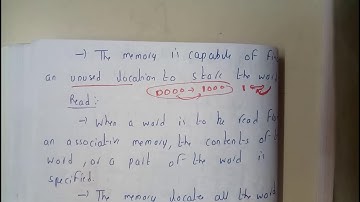 → The memory is capable of
an unused location to store the
Read:
0000 → 1000
→ When a word is to be read
an associative memory, the contents of
word, or a part of the word is
specified.
→ The memory locates all the